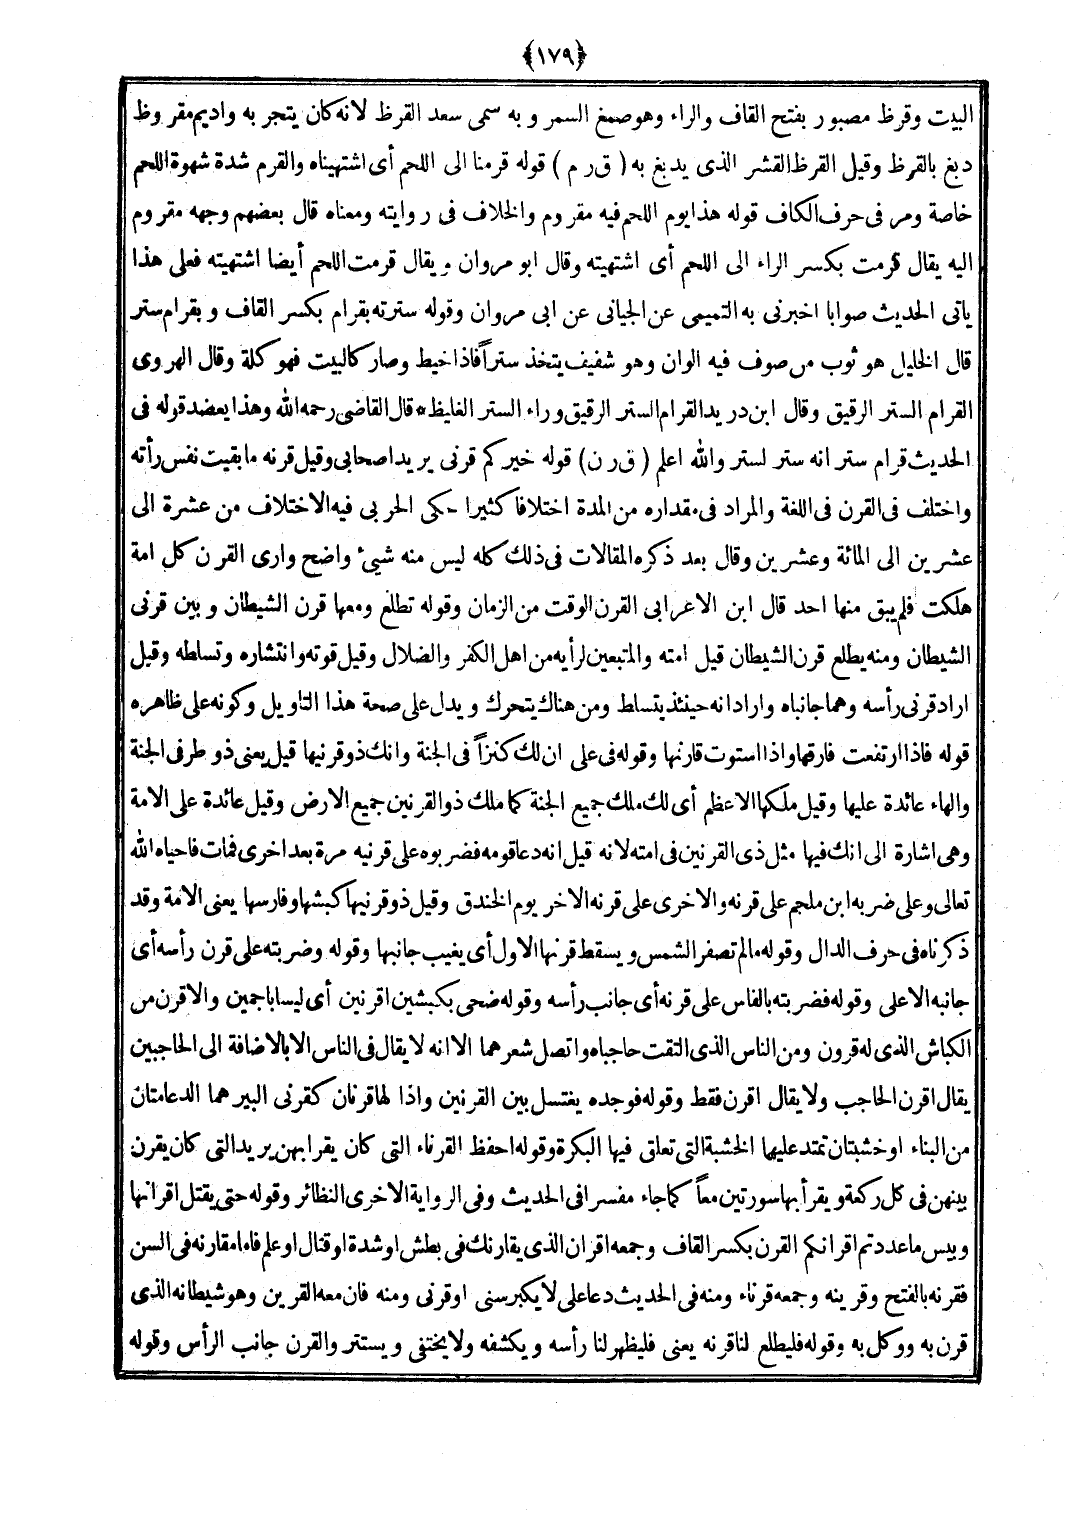 ﴿١٧٩﴾
البيت وقرظ مصبور بفتح القاف والراء وهو صمغ السمر و به سمى سعد القرظ لانه كان يتجر به واديم مقروظ
دبغ بالقرظ وقيل القرظ القشر الذى يدبغ به ( ق ر م ) قوله قرمنا الى اللحم أى اشتهيناه والقرم شدة شهوة اللحم
خاصة ومر فى حرف الكاف قوله هذا يوم اللحم فيه مقروم والخلاف فى روايته ومعناه قال بعضهم وجهه مقروم
اليه يقال قرمت بكسر الراء الى اللحم أى اشتهيته وقال ابو مروان ويقال قرمت اللحم أيضا اشتهيته فعلى هذا
ياتى الحديث صوابا اخبرنى به التميمى عن الجيانى عن ابى مروان وقوله سترته بقرام بكسر القاف و بقرام ستر
قال الخليل هو ثوب من صوف فيه الوان وهو شفيف يتخذ ستراً فاذا خيط وصار كالبيت فهو كلة وقال الهروى
القرام الستر الرقيق وقال ابن دريد القرام الستر الرقيق وراء الستر الغليظ * قال القاضى رحمه الله وهذا يعضد قوله فى
الحديث قرام ستر انه ستر لستر والله اعلم ( ق ر ن ) قوله خيركم قرنى يريد اصحابى وقيل قرنه ما بقيت نفس رأته
واختلف فى القرن فى اللغة والمراد فى مقداره من المدة اختلافا كثيرا حكى الحربى فيه الاختلاف من عشرة الى
عشرين الى المائة وعشرين وقال بعد ذكره المقالات فى ذلك كله ليس منه شيئ واضح وارى القرن كل امة
هلكت فلم يبق منها احد قال ابن الاعرابى القرن الوقت من الزمان وقوله تطلع ومعها قرن الشيطان و بين قرنى
الشيطان ومنه يطلع قرن الشيطان قيل امته والمتبعين لرأيه من اهل الكفر والضلال وقيل قوته وانتشاره وتسلطه وقيل
اراد قرنى رأسه وهما جانباه واراد انه حينئذ يتسلط ومن هناك يتحرك ويدل على صحة هذا التاويل وكونه على ظاهره
قوله فاذا ارتفعت فارقها واذا استوت قارنها وقوله فى على ان لك كنزاً فى الجنة وانك ذو قرنيها قيل يعنى ذو طرفى الجنة
والهاء عائدة عليها وقيل ملكها الاعظم أى لك ملك جميع الجنة كما ملك ذو القرنين جميع الارض وقيل عائدة على الامة
وهى اشارة الى انك فيها مثل ذى القرنين فى امته لانه قيل انه دعا قومه فضربوه على قرنيه مرة بعد اخرى فمات فاحياه الله
تعالى وعلى ضربه ابن ملجم على قرنه والاخرى على قرنه الاخر يوم الخندق وقيل ذو قرنيها كبشها وفارسها يعنى الامة وقد
ذكرناه فى حرف الدال وقوله مالم تصفر الشمس ويسقط قرنها الاول أى يغيب جانبها وقوله وضربته على قرن رأسه أى
جانبه الاعلى وقوله فضربته بالفاس على قرنه أى جانب رأسه وقوله ضحى بكبشين اقرنين أى ليسا باجمين والاقرن من
الكباش الذى له قرون ومن الناس الذى التقت حاجباه واتصل شعرهما الا انه لا يقال فى الناس الا بالاضافة الى الحاجبين
يقال اقرن الحاجب ولا يقال اقرن فقط وقوله فوجده يغتسل بين القرنين واذا لها قرنان كقرنى البير هما الدعامتان
من البناء اوخشبتان تمتد عليها الخشبة التى تعلق فيها البكرة وقوله احفظ القرناء التى كان يقرا بهن يريد التى كان يقرن
بينهن فى كل ركعة ويقرأ بها سورتين معاً كما جاء مفسرا فى الحديث وفى الرواية الاخرى النظائر وقوله حتى يقتل اقرانها
وبيس ما عددتم اقرانكم القرن بكسر القاف وجمعه اقران الذى يقارنك فى بطش او شدة او قتال او علم فاما مقارنه فى السن
فقرنه بالفتح وقرينه وجمعه قرناء ومنه فى الحديث دعا على لا يكبر سنى اوقرنى ومنه فان معه القرين وهو شيطانه الذى
قرن به ووكل به وقوله فليطلع لنا قرنه يعنى فليظهر لنا رأسه ويكشفه ولا يختفى ويستتر والقرن جانب الرأس وقوله